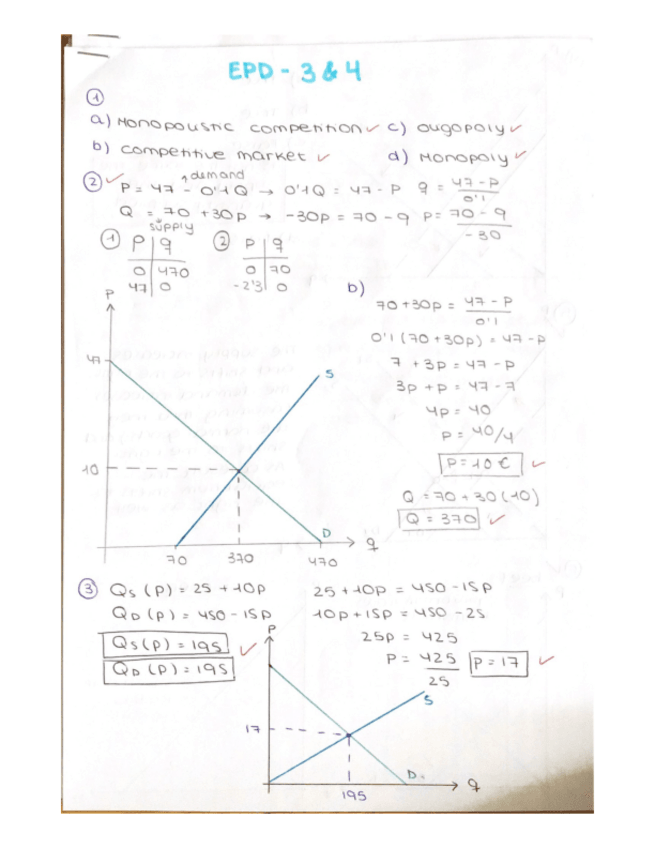 EPD - 3 & 4
①
a) Monopolistic competition ✓ c) oligopoly ✓
b) competitive market ✓ d) Monopoly ✓
② ✓
↑ demand
P = 47 - 0'1Q → 0'1Q = 47 - P q = 47 - P / 0'1
Q = 70 + 30p → -30p = 70 - q p = 70 - q / -30
supply
① P | q
0 | 470
47 | 0
② P | q
0 | 70
-2'3 | 0
b)
70 + 30p = 47 - P / 0'1
0'1 (70 + 30p) = 47 - p
7 + 3p = 47 - p
3p + p = 47 - 7
4p = 40
p = 40/4
p = 10 € ✓
Q = 70 + 30 (10)
Q = 370 ✓
P
47
S
10
D
q
70 370 470
③ Qs (p) = 25 + 10p
QD (p) = 450 - 15p
Qs (p) = 195 ✓
QD (p) = 195
25 + 10p = 450 - 15p
10p + 15p = 450 - 25
25p = 425
p = 425 / 25 p = 17 ✓
P
S
17
D
q
195